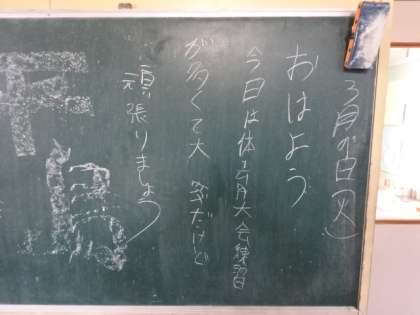 月 日(火)
おはよう
今日は体育大会練習
が多くて大変だけど
頑張りましょう